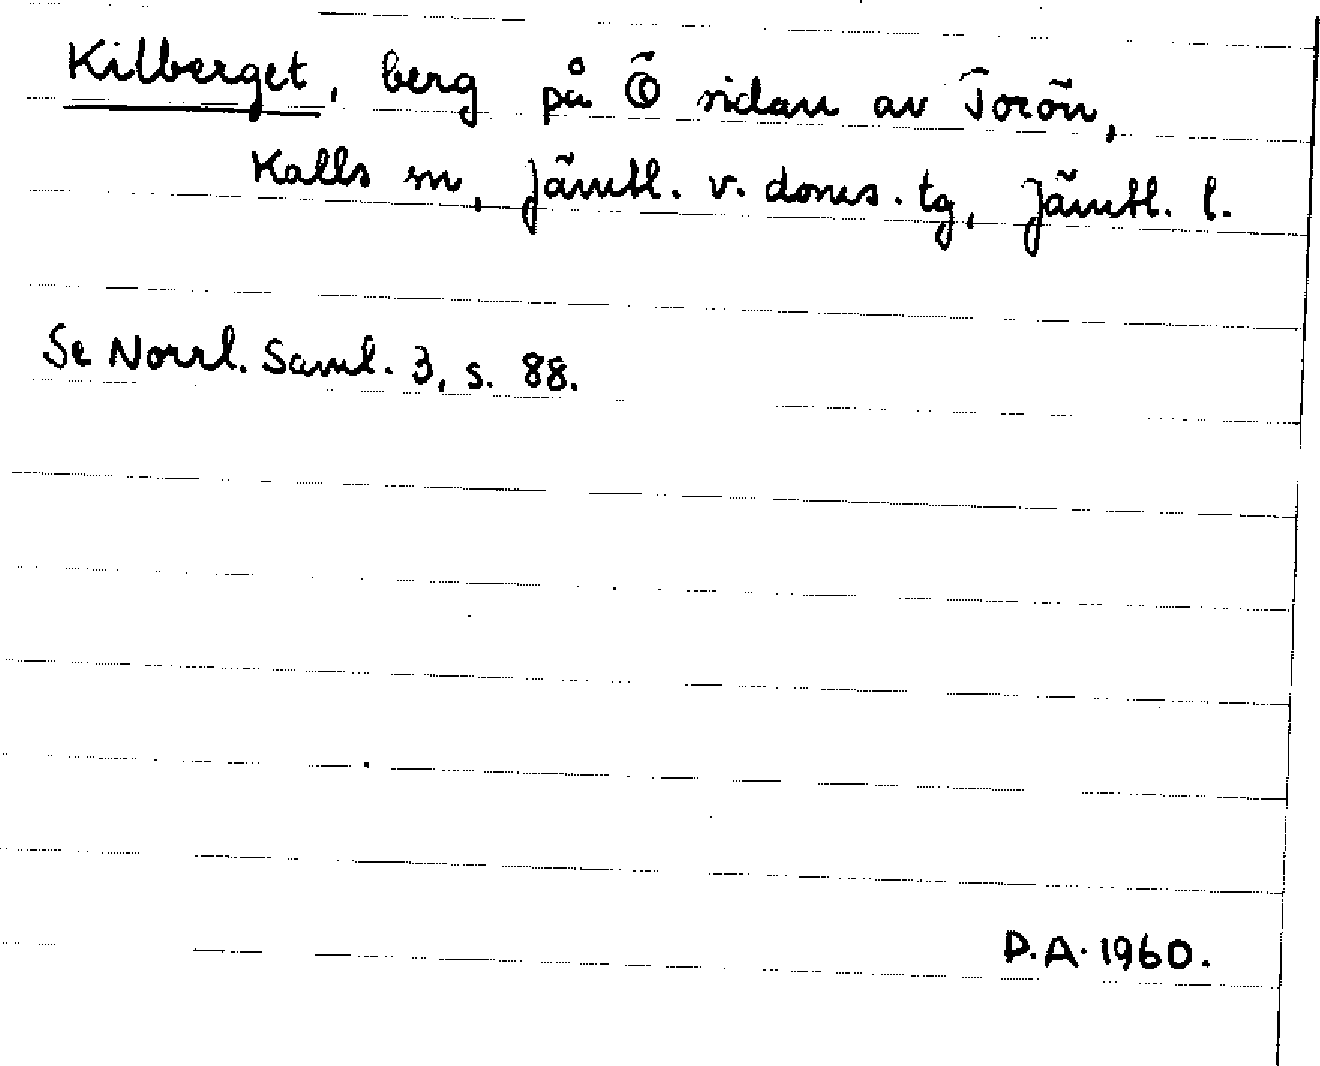 Kilberget, berg på Ö sidan av Torön,
Kalls sn, Jämtl. v. doms. tg, Jämtl. l.
Se Norrl. Saml. 3, s. 88.
D.A. 1960.